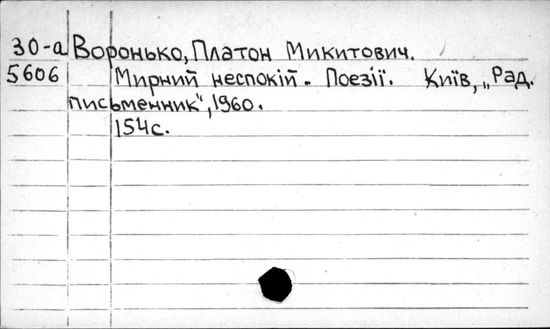 30-а Воронько, Платон Микитович.
5606 Мирний неспокій. Поезії. Київ, „Рад.
письменник", 1960.
154с.